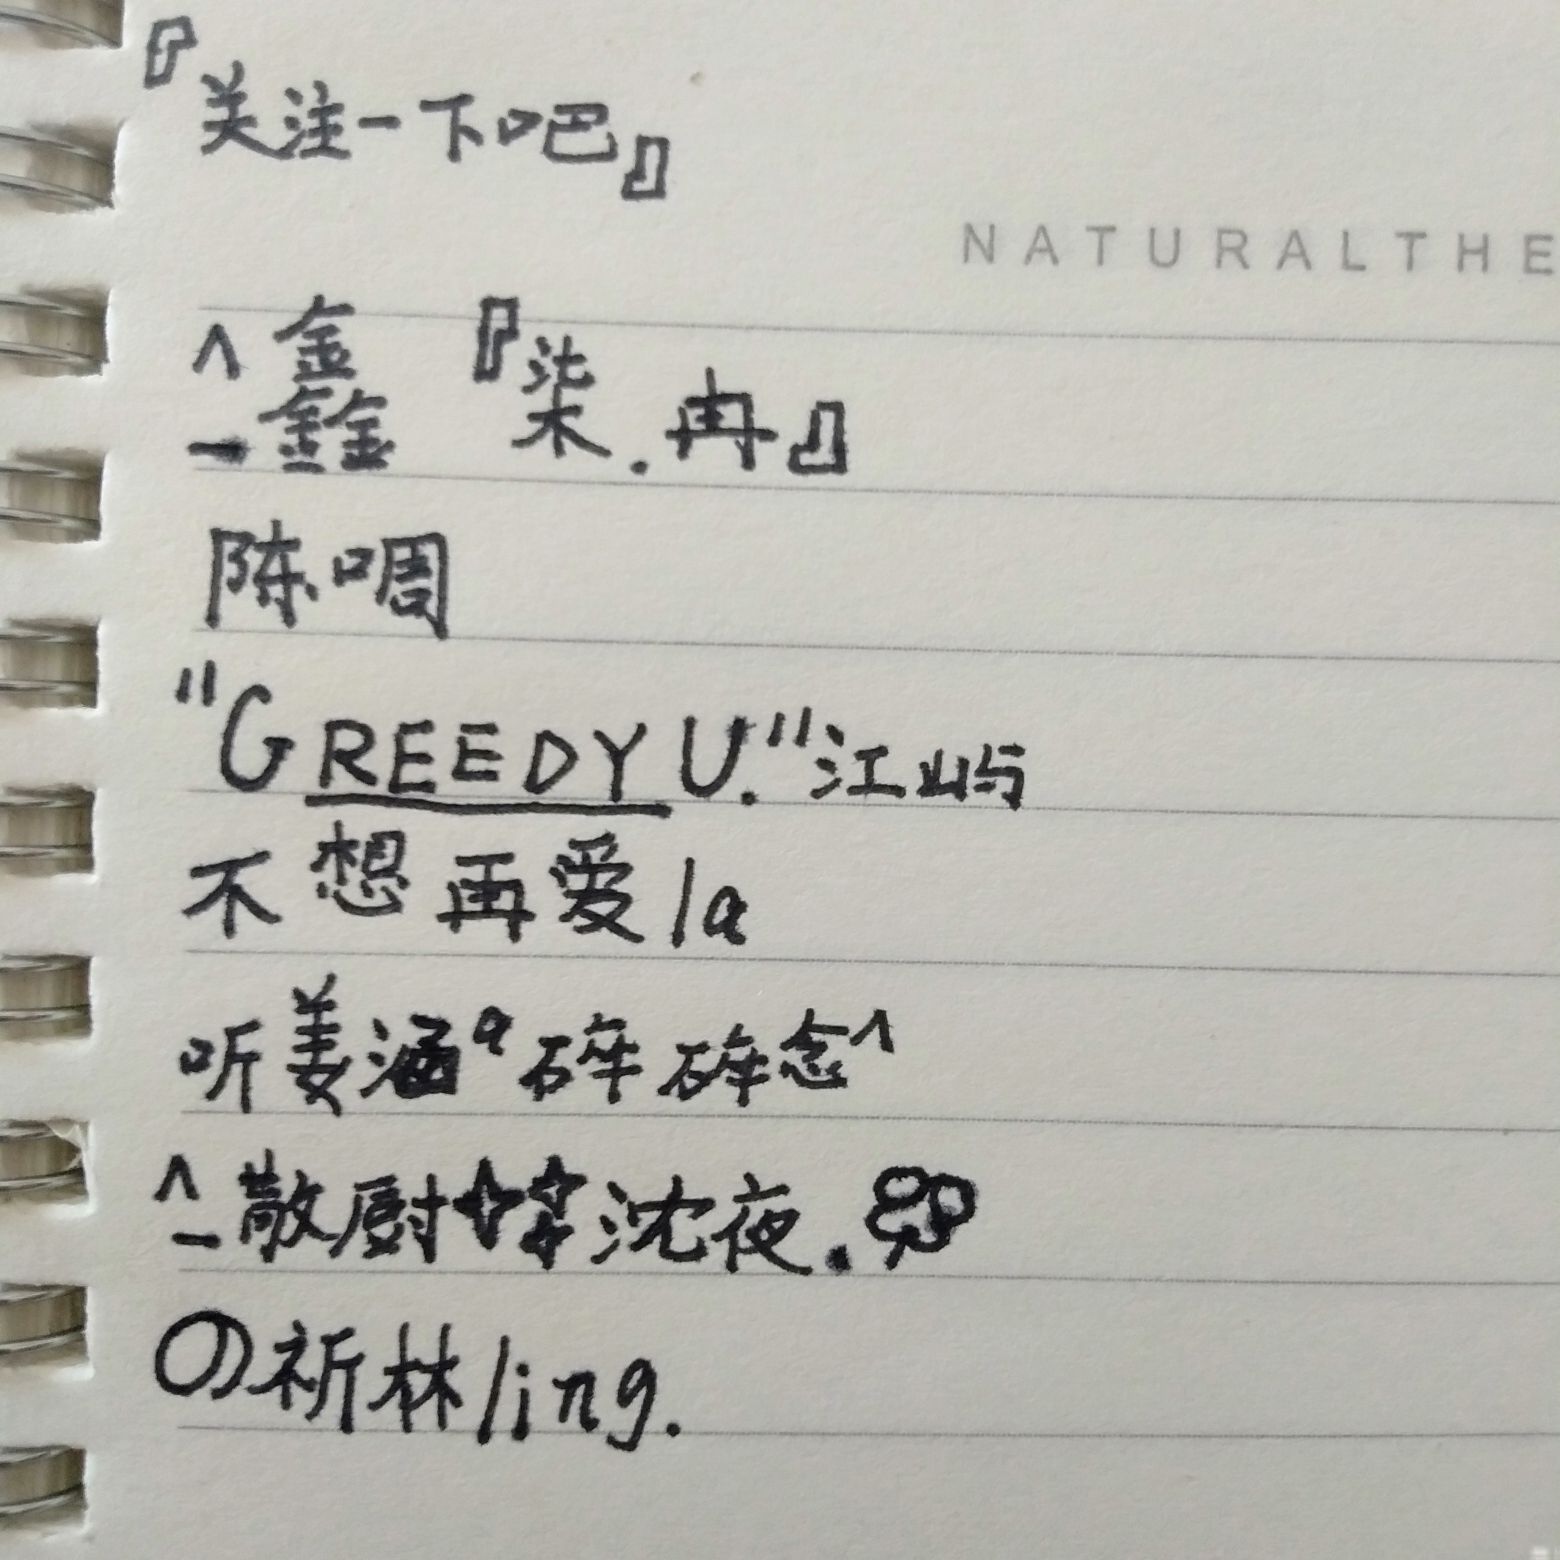 『关注一下吧』
NATURALTHE
^_鑫『柒.冉』
陈啁
"GREEDY U."江屿
不想再爱la
听姜涵a碎碎念^
^_散厨☆☆沈夜.
の祈林ling.